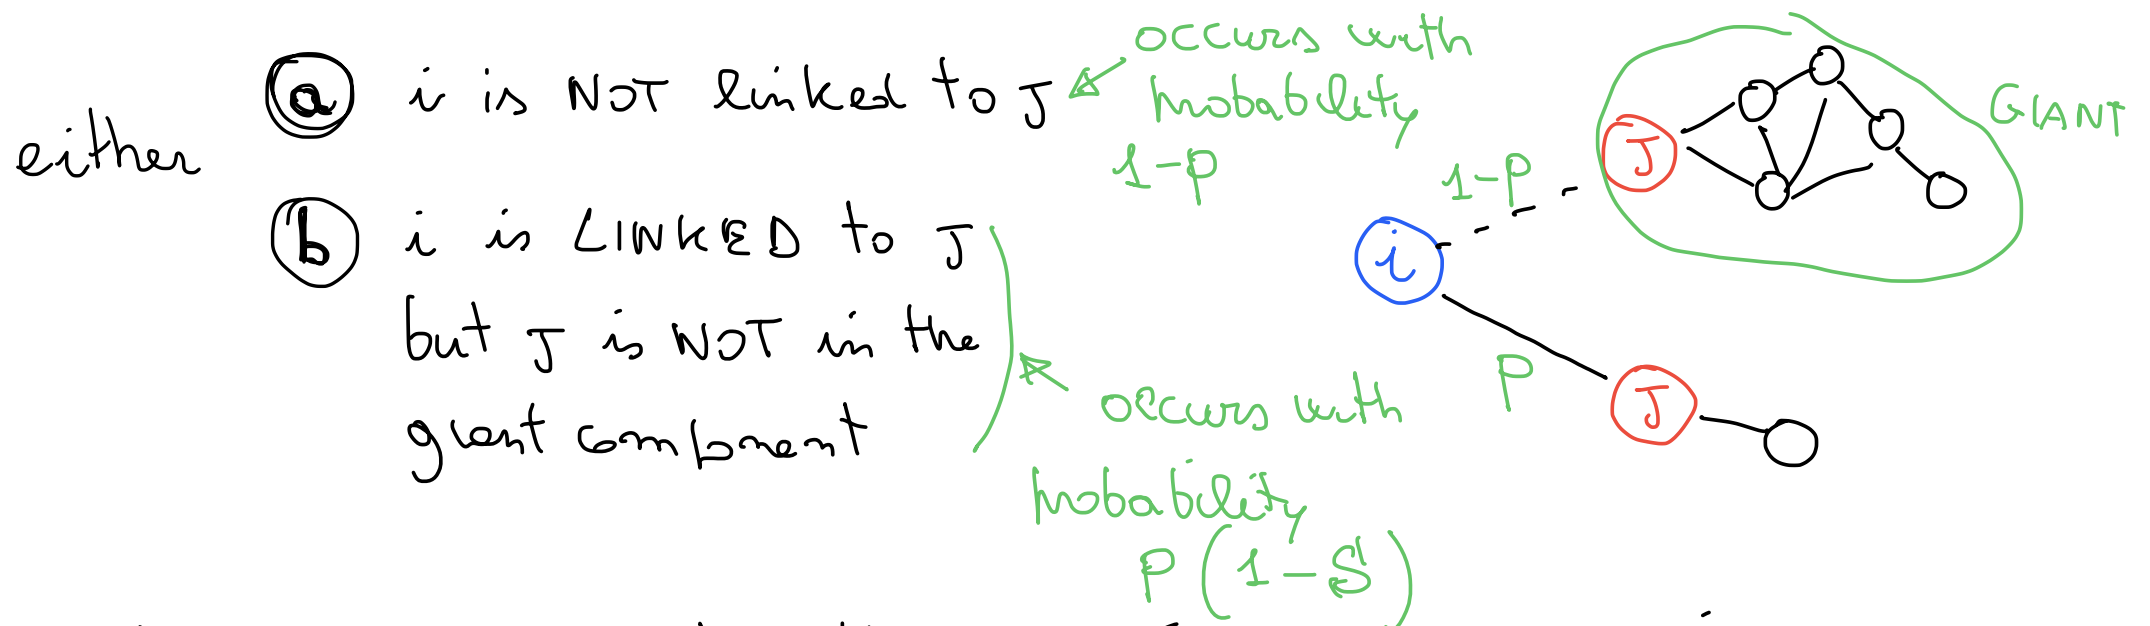 either
a i is NOT linked to J
occurs with
probability
1-p
b i is LINKED to J
but J is NOT in the
giant component
occurs with
probability
P(1-S)
1-P
J
GIANT
i
P
J